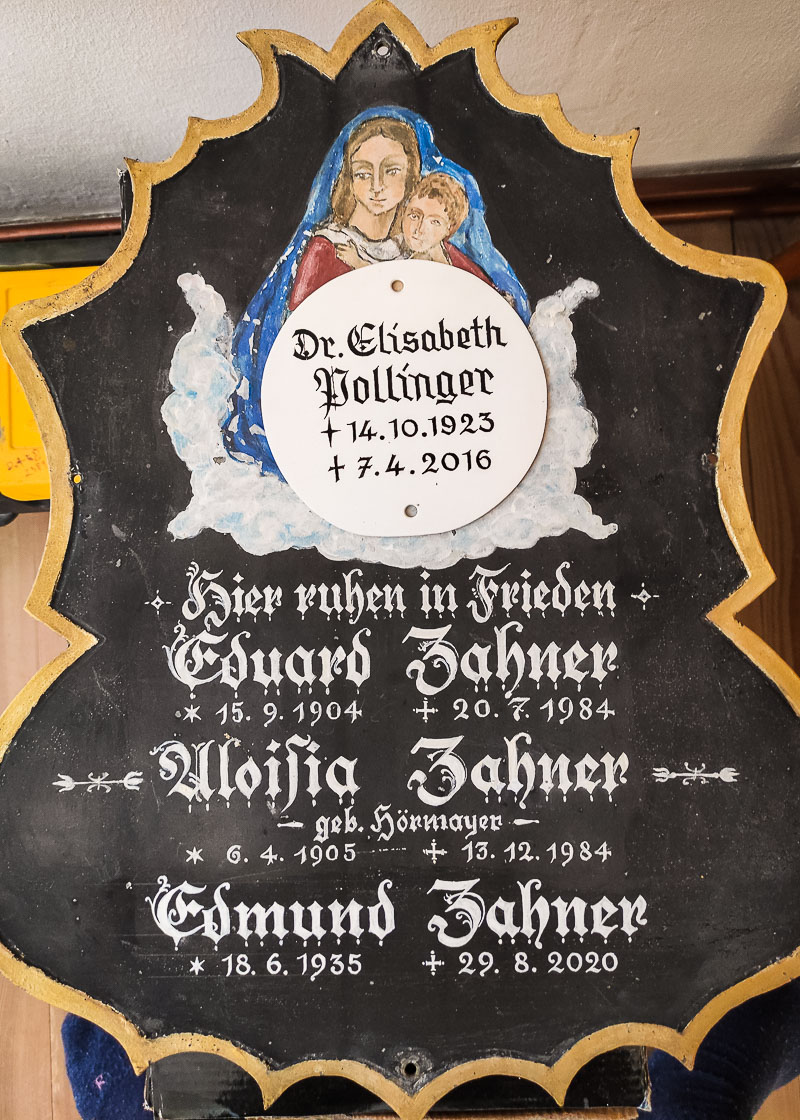 Dr. Elisabeth
Pollinger
+ 14.10.1923
+ 7.4.2016
Hier ruhen in Frieden
Eduard Zahner
* 15. 9. 1904 + 20. 7. 1984
Aloiſia Zahner
– geb. Hörmayer –
* 6. 4. 1905 + 13. 12. 1984
Edmund Zahner
* 18. 6. 1935 + 29. 8. 2020